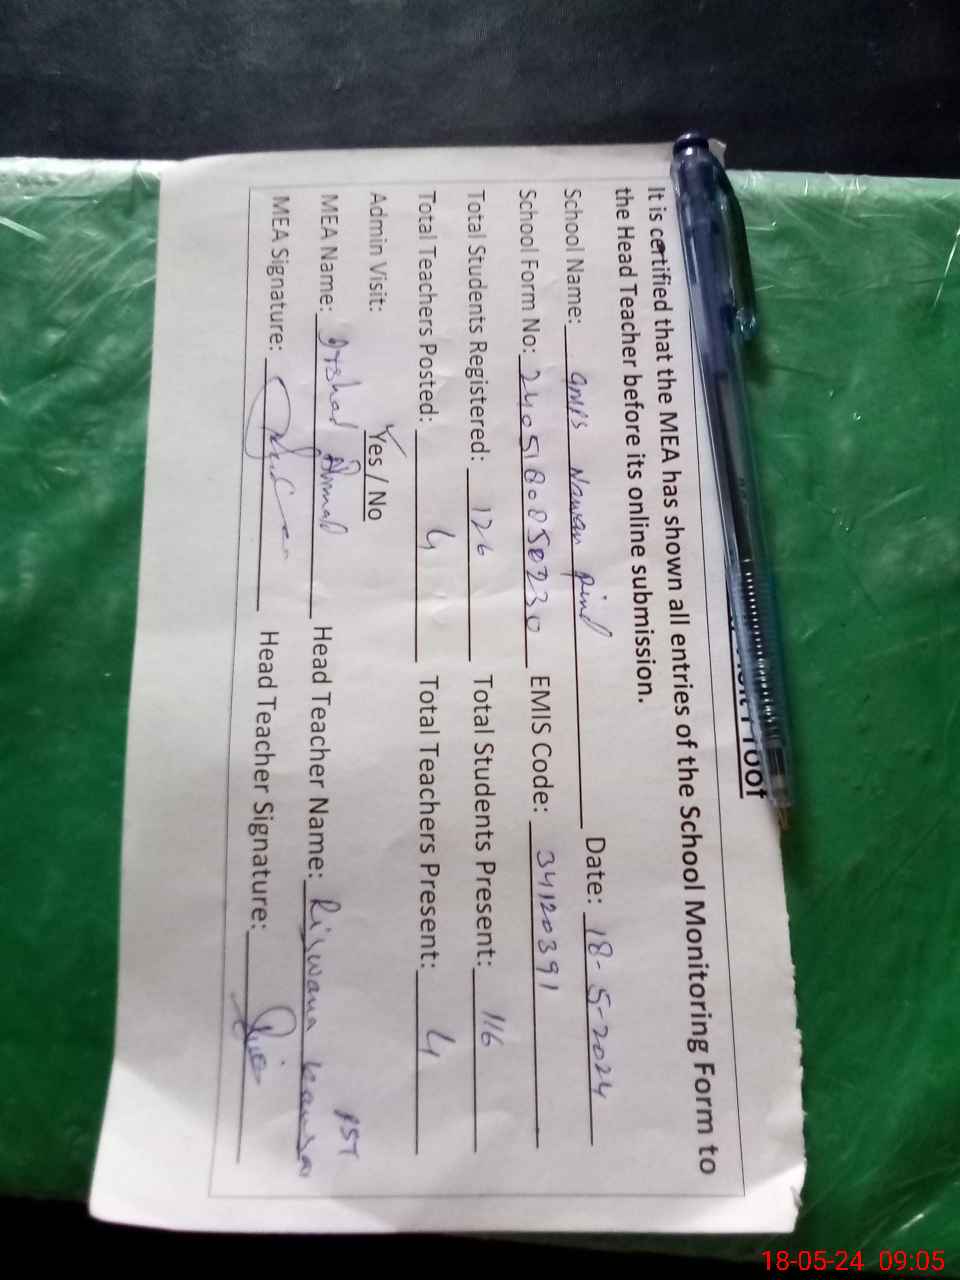 Proof
It is certified that the MEA has shown all entries of the School Monitoring Form to
the Head Teacher before its online submission.
School Name: GMPS Nawan Pind Date: 18-5-2024
School Form No: EMIS Code: 34120391
Total Students Registered: 126 Total Students Present: 116
Total Teachers Posted: 4 Total Teachers Present: 4
Admin Visit: Yes / No
PST
MEA Name: Arshad Ahmad Head Teacher Name: Rizwana Kausar
MEA Signature: Head Teacher Signature:
18-05-24 09:05